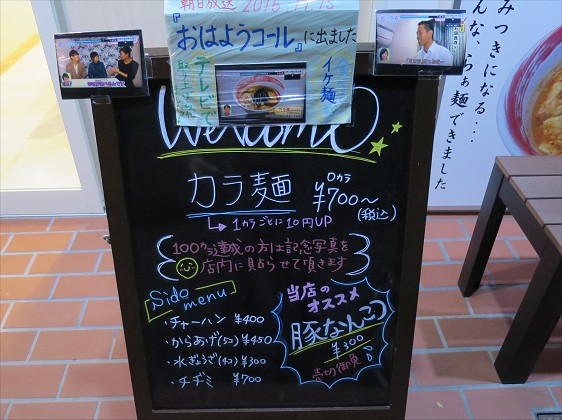 朝日放送 2016.11.13
『おはようコール』に出ました
テレビで
イケ麺
Welcome
カラ麺 0カラ ¥700～
(税込)
↳ 1カラごとに10円UP
100カラ達成の方は記念写真を
店内に貼らせて頂きます
Side menu
・チャーハン ¥400
・からあげ(5コ) ¥450
・水ぎょうざ(4コ) ¥300
・チヂミ ¥700
当店の
オススメ
豚なんこつ
¥300
売切御免
みつきになる...
んな、らぁ麺できました